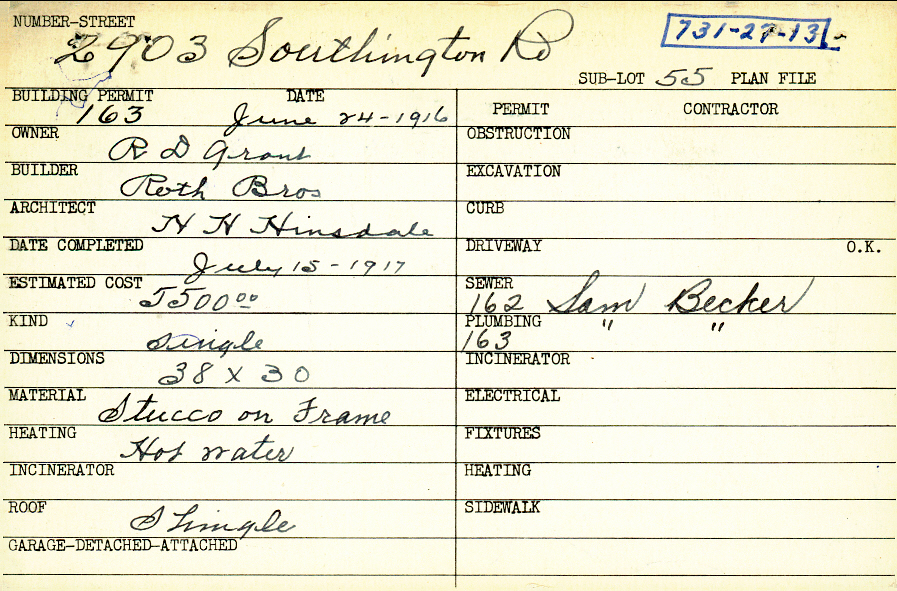 NUMBER-STREET
2903 Southington Rd
731-27-13
SUB-LOT 55 PLAN FILE
BUILDING PERMIT DATE
163 June 24-1916
OWNER
R D Grant
BUILDER
Roth Bros
ARCHITECT
H H Hinsdale
DATE COMPLETED
July 15-1917
ESTIMATED COST
5500 00
KIND
single
DIMENSIONS
38 X 30
MATERIAL
Stucco on Frame
HEATING
Hot water
INCINERATOR
ROOF
Shingle
GARAGE-DETACHED-ATTACHED
PERMIT CONTRACTOR
OBSTRUCTION
EXCAVATION
CURB
DRIVEWAY O.K.
SEWER
162 Sam Becker
PLUMBING " "
163
INCINERATOR
ELECTRICAL
FIXTURES
HEATING
SIDEWALK